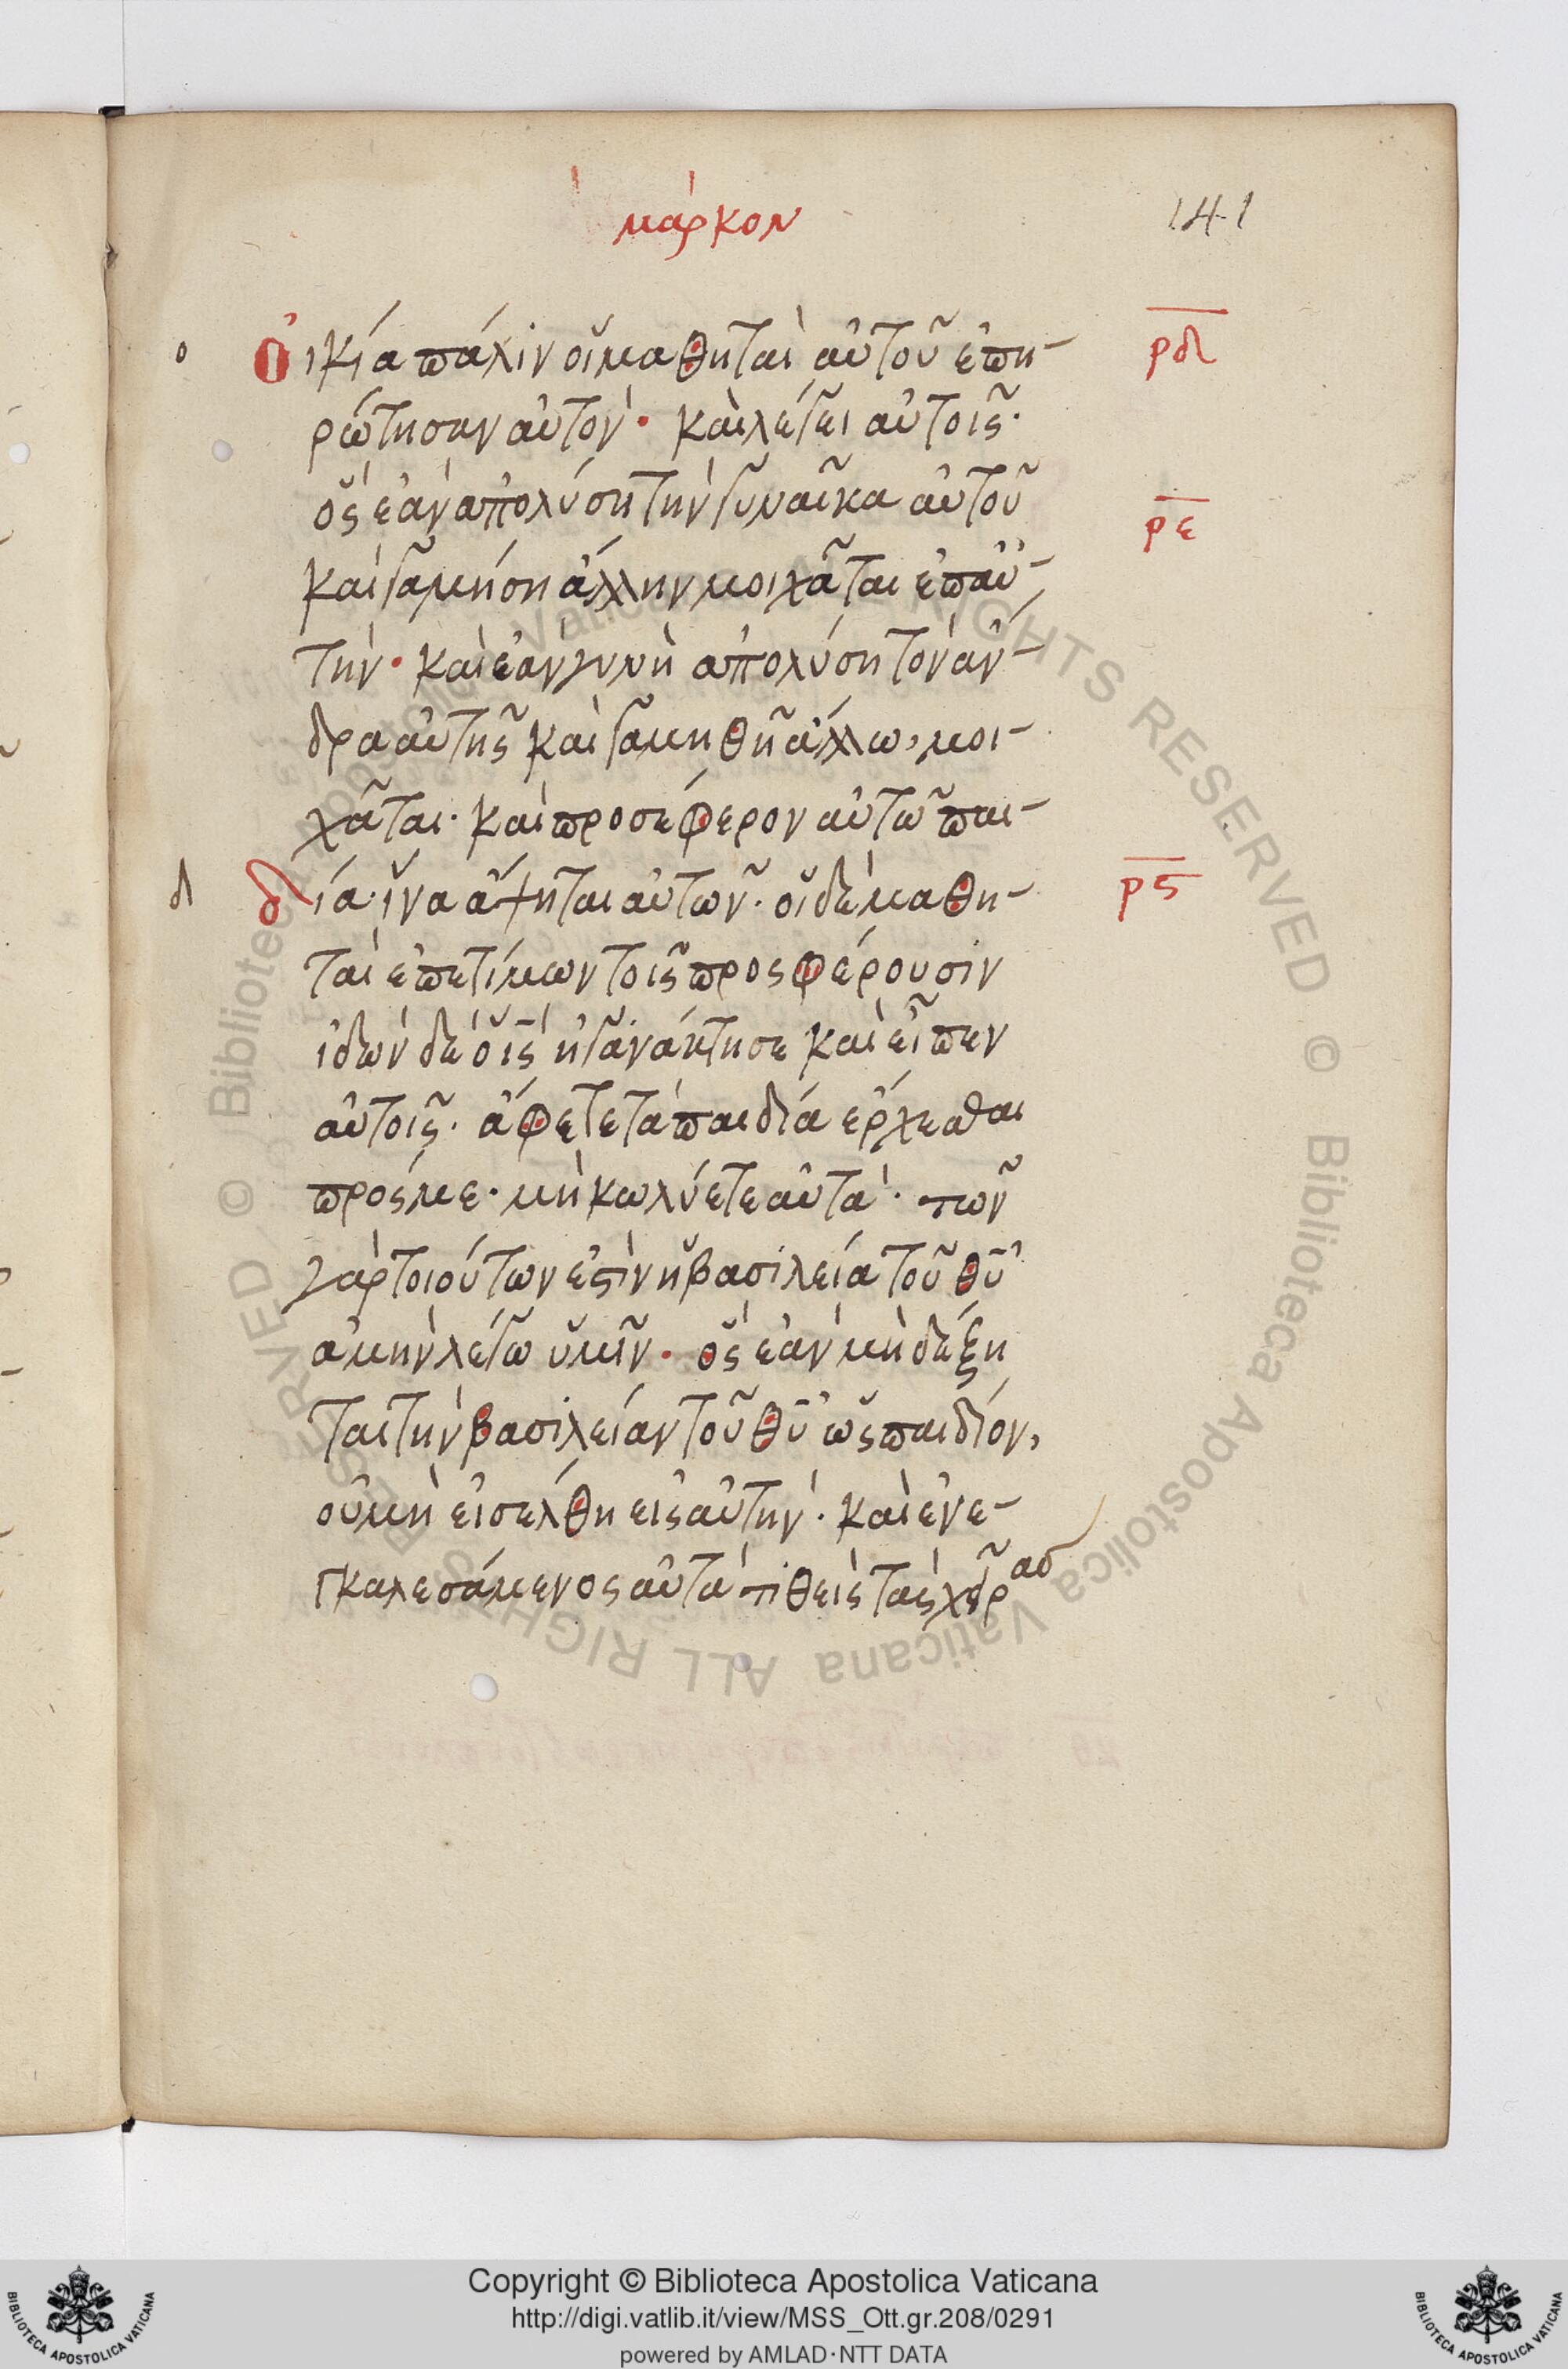 μάρκον
141
ο
οἰκία πάλιν οἱ μαθηταὶ αὐτοῦ ἐπη-
ρδ
ρώτησαν αὐτόν· καὶ λέγει αὐτοῖς·
ὃς ἐὰν ἀπολύση τὴν γυναῖκα αὐτοῦ
ρε
καὶ γαμήση ἄλλην μοιχᾶται ἐπ αὐ-
τήν· καὶ ἐὰν γυνὴ ἀπολύση τὸν ἄν-
δρα αὐτῆς καὶ γαμηθῆ ἄλλω, μοι-
χᾶται· καὶ προσέφερον αὐτῶ παι-
δ
δία· ἵνα ἅψηται αὐτῶν· οἱ δὲ μαθη-
ρς
ταὶ ἐπετίμων τοῖς προσφέρουσιν
ἰδὼν δὲ ὁ ις ἠγανάκτησε καὶ εἶπεν
αὐτοῖς· ἄφετε τὰ παιδία ἔρχεσθαι
πρός με· μὴ κωλύετε αὐτά· τῶν
γὰρ τοιούτων ἐστὶν ἡ βασιλεία τοῦ θυ
ἀμὴν λέγω ὑμῖν· ὃς ἐὰν μὴ δέξη
ται τὴν βασιλείαν τοῦ θυ ὡς παιδίον,
οὐ μὴ εἰσέλθη εἰς αὐτήν· καὶ ἐνε-
γκαλεσάμενος αὐτὰ τιθεὶς τὰς χεῖρας
Copyright © Biblioteca Apostolica Vaticana
http://digi.vatlib.it/view/MSS_Ott.gr.208/0291
powered by AMLAD·NTT DATA
BIBLIOTECA APOSTOLICA VATICANA
BIBLIOTECA APOSTOLICA VATICANA